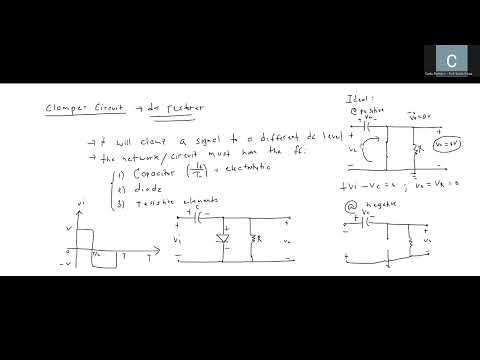 Clamper Circuit → dc restorer
→ it will clamp a signal to a different dc level
→ the network/circuit must have the ff:
1) Capacitor → electrolytic
2) diode
3) resistive elements
vi
V
0
-V
T/2
T
T
+ C -
+
Vi
-
R
+
vo
-
Ideal:
@ positive
+ Vc -
vo = 0V
+
-
R
+
-
vo = 0V
+Vi - Vc = 0 ; vo = VR = 0
@ negative
Vc
+ -
-
+
R
+
vo
-
C